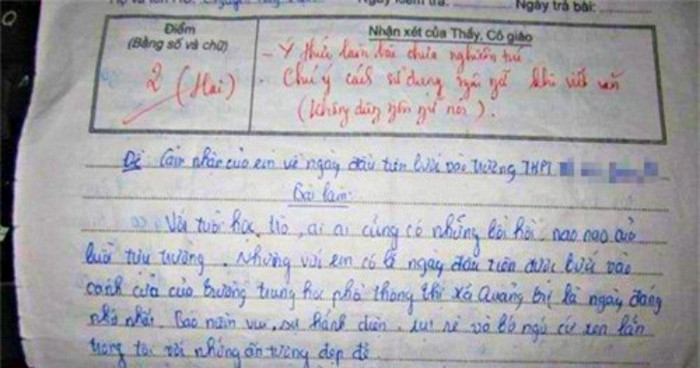 Ngày trả bài:
Điểm
(Bằng số và chữ)
2 (Hai)
Nhận xét của Thầy, Cô giáo
- Ý thức làm bài chưa nghiêm túc
- Chú ý cách sử dụng ngôn ngữ khi viết văn
(không dùng ngôn ngữ nói).
Đề: Cảm nhận của em về ngày đầu tiên bước vào trường THPT
Bài làm:
Với tuổi học trò, ai ai cũng có những bồi hồi, nao nao của
buổi tựu trường. Nhưng với em có lẽ ngày đầu tiên được bước vào
cánh cửa của trường trung học phổ thông thị xã Quảng Trị là ngày đáng
nhớ nhất. Bao niềm vui, sự hãnh diện, rụt rè và bỡ ngỡ cứ xen lẫn
trong tôi với những ấn tượng đẹp đẽ.